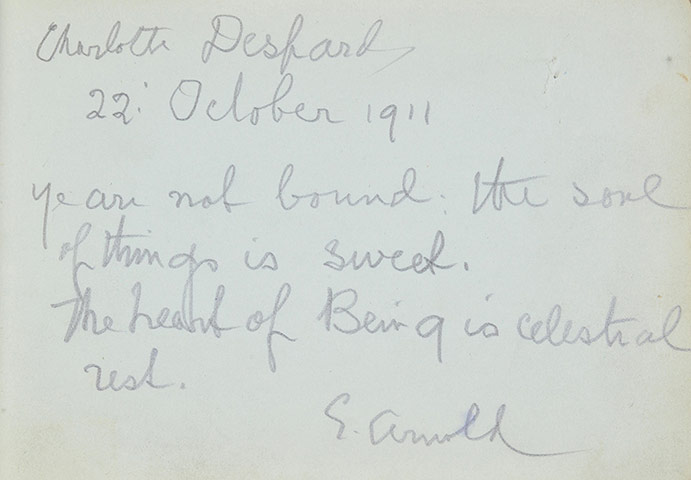 Charlotte Despard
22. October 1911
ye are not bound. the soul
of things is sweet.
The heart of Being is celestial
rest.
E. Arnold